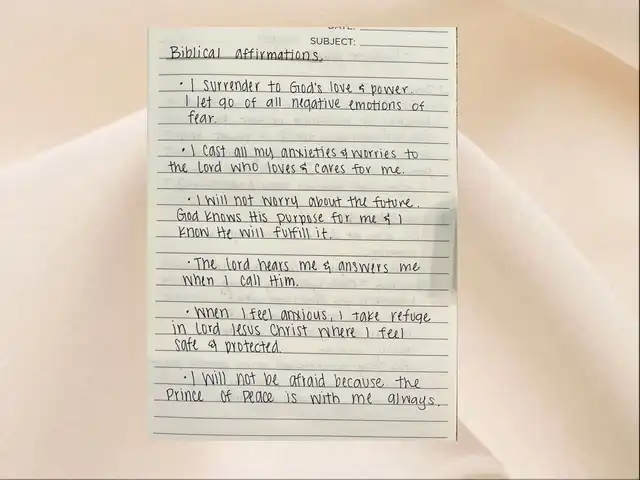 DATE:
SUBJECT:
Biblical affirmations.
• I surrender to God's love & power.
I let go of all negative emotions of
fear.
• I cast all my anxieties & worries to
the Lord who loves & cares for me.
• I will not worry about the future.
God knows His purpose for me & I
know He will fulfill it.
• The Lord hears me & answers me
when I call Him.
• When I feel anxious, I take refuge
in Lord Jesus Christ where I feel
safe & protected.
• I will not be afraid because the
Prince of Peace is with me always.